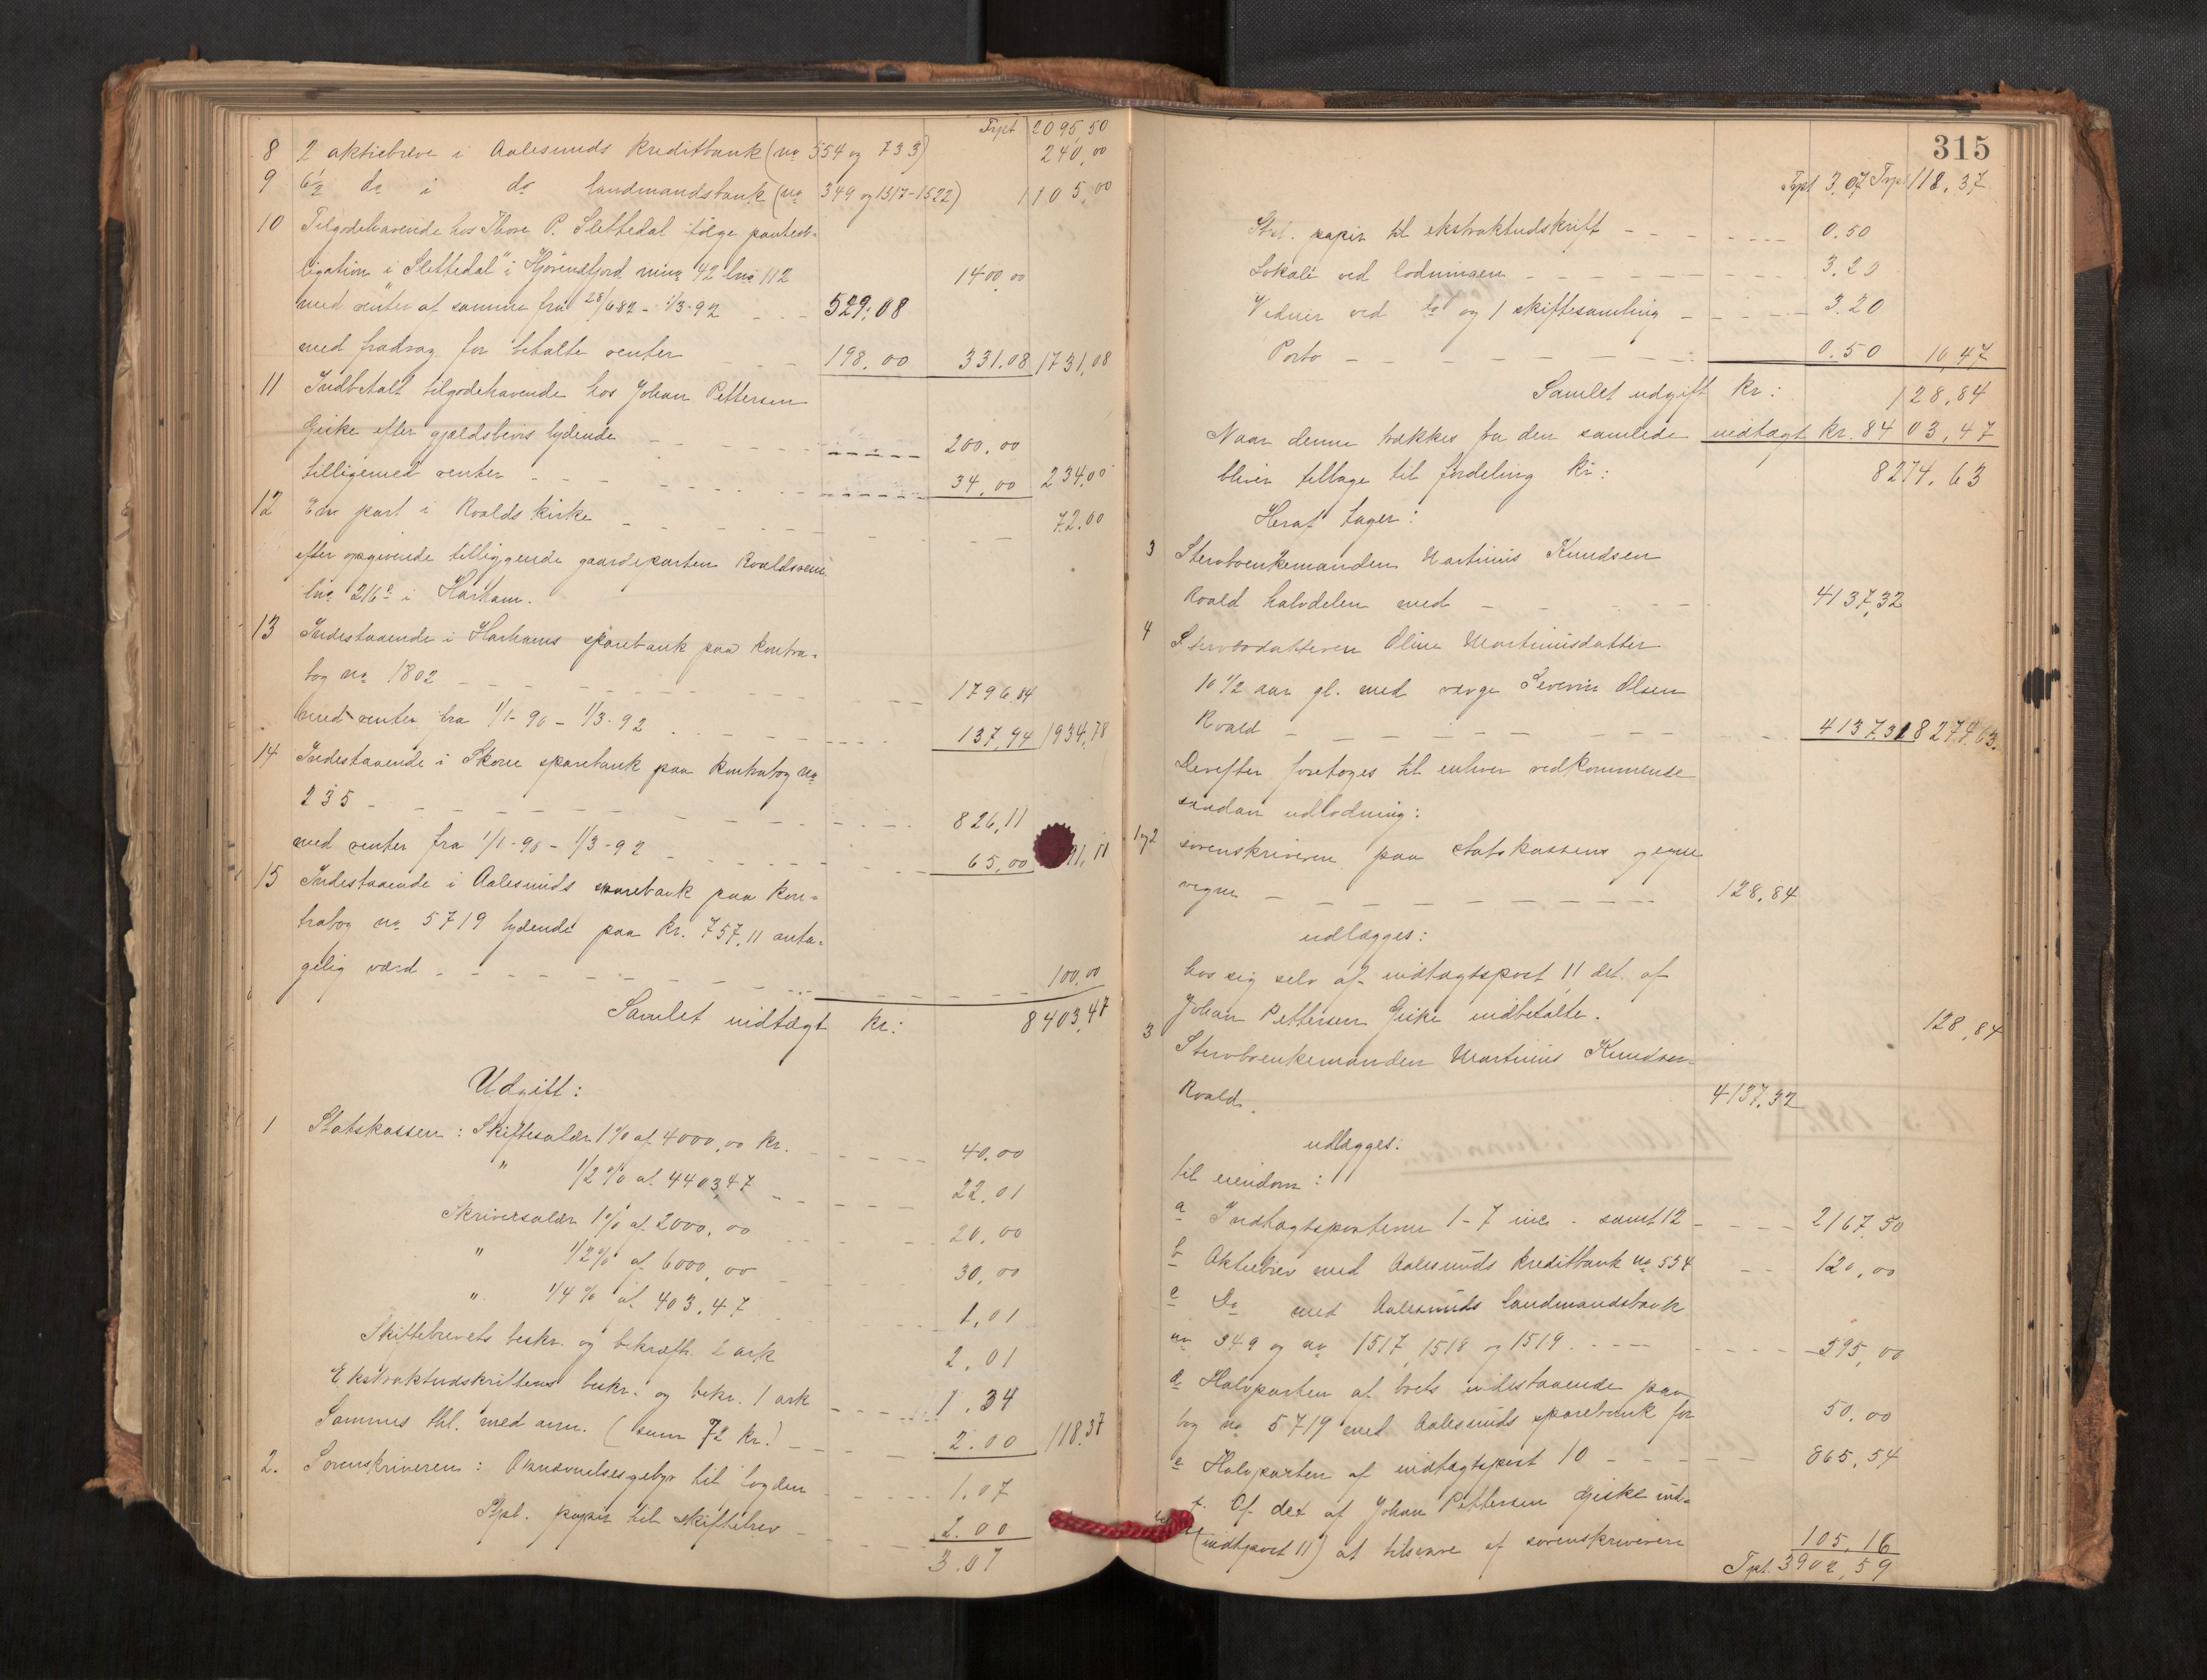 Trpt 2095,50
8 2 aktiebreve i Aalesunds kreditbank (no 554 og 733) 240,00
9 6½ do i do landmandsbank (no 349 og 1517-1522) 1105,00
10 Tilgodehavende hos Thore P. Slettedal ifølge panteob-
ligation i "Slettedal" i Hjørensfjord 42 lno 112 1400,00
med renter af samme fra 28/6 82 - 1/3-92 - - - 529,08
med fradrag for betalte renter 198,00 331.08 1731,08
11 Indbetalt tilgodehavende hos Johan Pettersen
Giske efter gjældsbevis lydende - - - 200.00
tilligemed renter - - - 34,00 234,00
12 En part i Roalds kirke - - - 72.00
efter opgivende tilliggende gaardsparten Roaldsvem
lno 216 i Harham.
13 Indestaaende i Harhams sparebank paa kontra-
bog no 1802 - - - 1796,84
med renter fra 1/1-90 - 1/3-92 - - - 137,94 1934,78
14 Indestaaende i Skone sparebank paa kontrabog no
235 - - - 826,11
med renter fra 1/1-90 - 1/3-92 - - - 65,00 91,11
15 Indestaaende i Aalesunds sparebank paa kon-
trabog no 5719 lydende paa kr. 757,11 anta-
gelig værd - - - 100,00
Samlet indtægt kr: 8403,47
Udgift:
1 Statskassen: Skiftesalær 1% af 4000,00 kr. - - - 40.00
" 1/2% af 4403,47 - - - 22.01
Skriversalær 1% af 2000,00 - - - 20,00
" 1/2% af 6000,00 - - - 30,00
" 1/4% af 403,47 - - - 1,01
Skiftebrevets beskr. og bekræft. 2 ark 2.01
Ekstraktudskriftens beskr. og bekr. 1 ark - - - 1.34
Sammes thl. med ann. (sum 72 kr.) - - - 2.00 118.37
2. Sorenskriveren: Opnævnelsesgebyr til fogden - - - 1.07
Stpl. papir til skiftebrev - - - 2.00
3.07
315
Trpt 3,07 Trpt 118,37
Stpl. papir til ekstraktudskrift - - - 0.50
Lokale ved lodningen - - - 3.20
Vidner ved do og 1 skiftesamling - - - 3.20
Porto - - - 0.50 10,47
Samlet udgift kr: 128,84
Naar denne trækkes fra den samlede indtægt kr. 8403,47
bliver tilbage til fordeling kr: 8274,63
Heraf tager:
3 Stervboenkemanden Martinus Knudsen
Roald halvdelen med - - - 4137,32
4 Stervbodatteren Oline Martinusdatter
10 1/2 aar gl. med værge Severin Olsen
Roald - - - 4137,31 8274,63.
Derefter foretoges til enhver vedkommende
saadan udlodning:
1 og 2 sorenskriveren paa statskassens og egne
vegne - - - 128,84
udlægges:
hos sig selv af indtægtspost 11 det af
Johan Pettersen Giske indbetalte. 128,84
3 Stervboenkemanden Martinus Knudsen
Roald. 4137,32
udlægges:
til eiendom:
a Indtægtsposterne 1-7 inc. samt 12 - - - 2167,50
b Aktiebrev med Aalesunds kreditbank no 554 - - 120,00
c Do med Aalesunds landmandsbank
no 349 og no 1517, 1518 og 1519. - - - 595,00
d Halvparten af boets indestaaende paa
bog no 5719 med Aalesunds sparebank for 50,00
e Halvparten af indtægtspost 10 - - - 865,54
f. Af det af Johan Pettersen Giske ind-
(indtpost 11) at tilsvare af sorenskriveren 105,16
Trpt. 3902,59